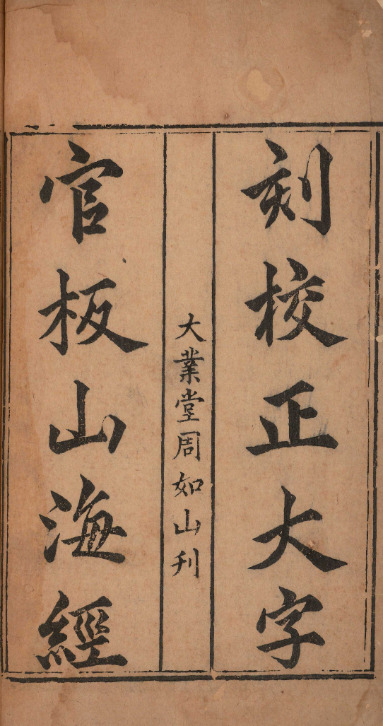 刻校正大字
大業堂周如山刊
官板山海經